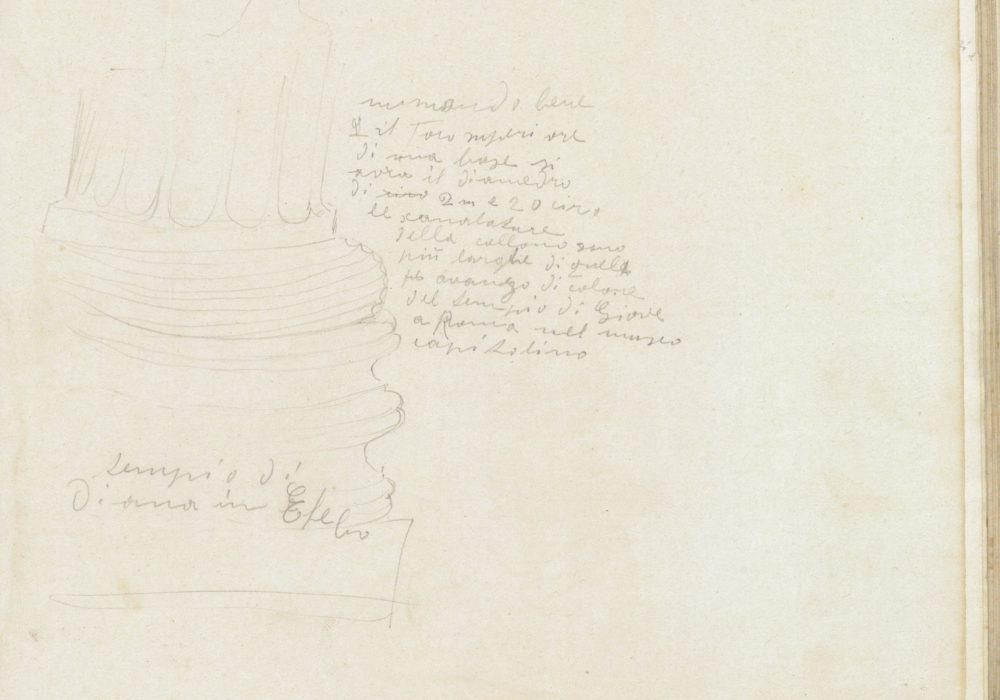 mimando bene
il Toro superiore
di una base si
avra il diametro
di circo 2 m e 20 circ.
le scanalature
della collono sono
più larghe di quell
avanzo di colone
del tempio di Giove
a Roma nel museo
capitolino
tempio di
Diana in Efebo